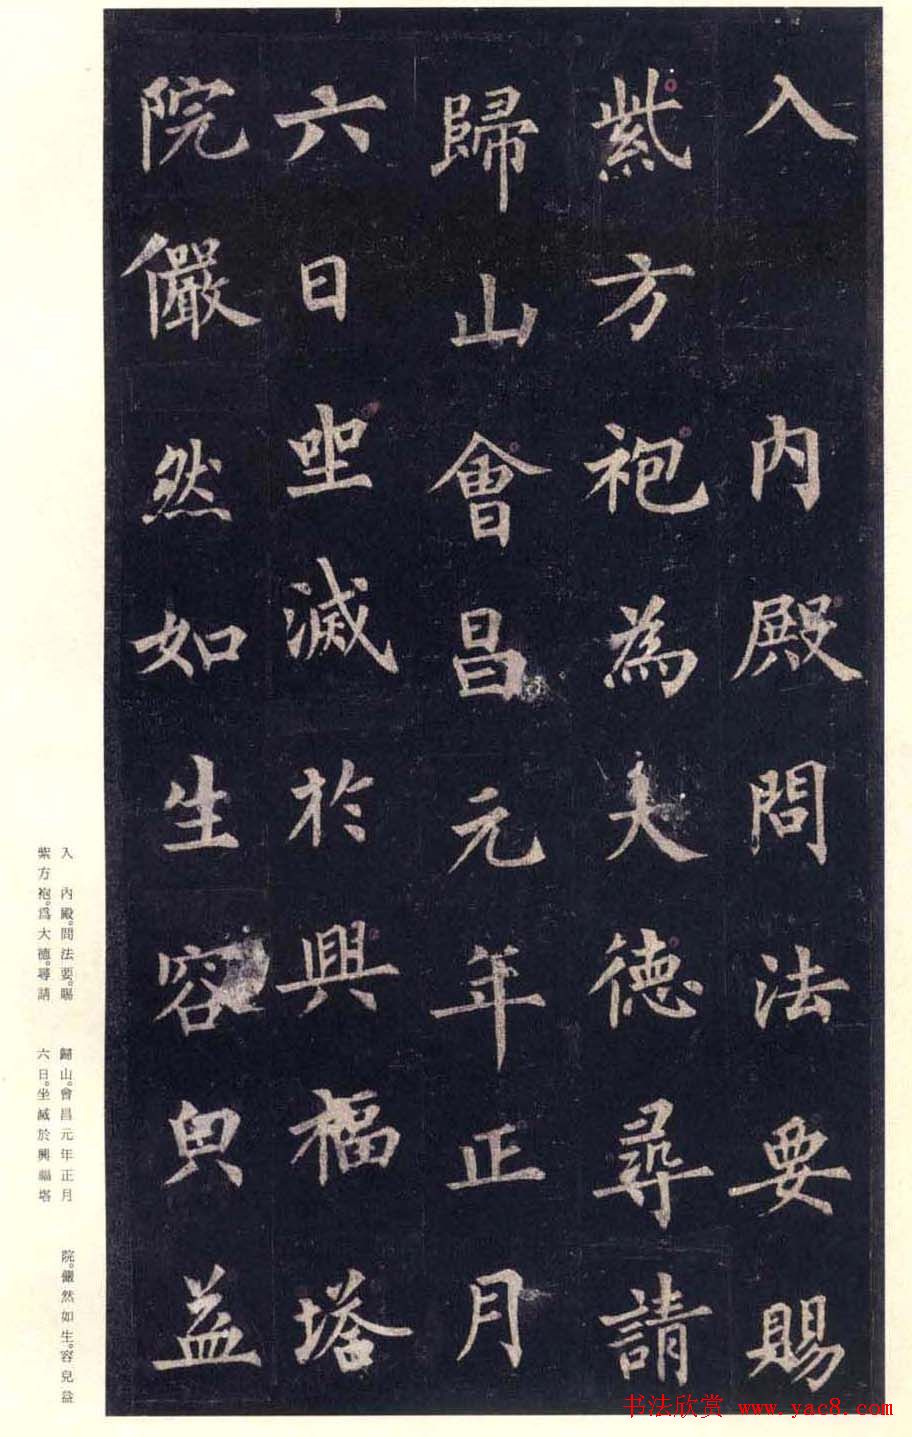 入 內殿問法要賜
紫方袍為大德尋請
歸山會昌元年正月
六日坐滅於興福塔
院儼然如生容皃益
入 內殿。問法要。賜
紫方袍。爲大德。尋請
歸山。會昌元年正月
六日。坐滅於興福塔
院。儼然如生。容皃益
书法欣赏 www.yac8.com